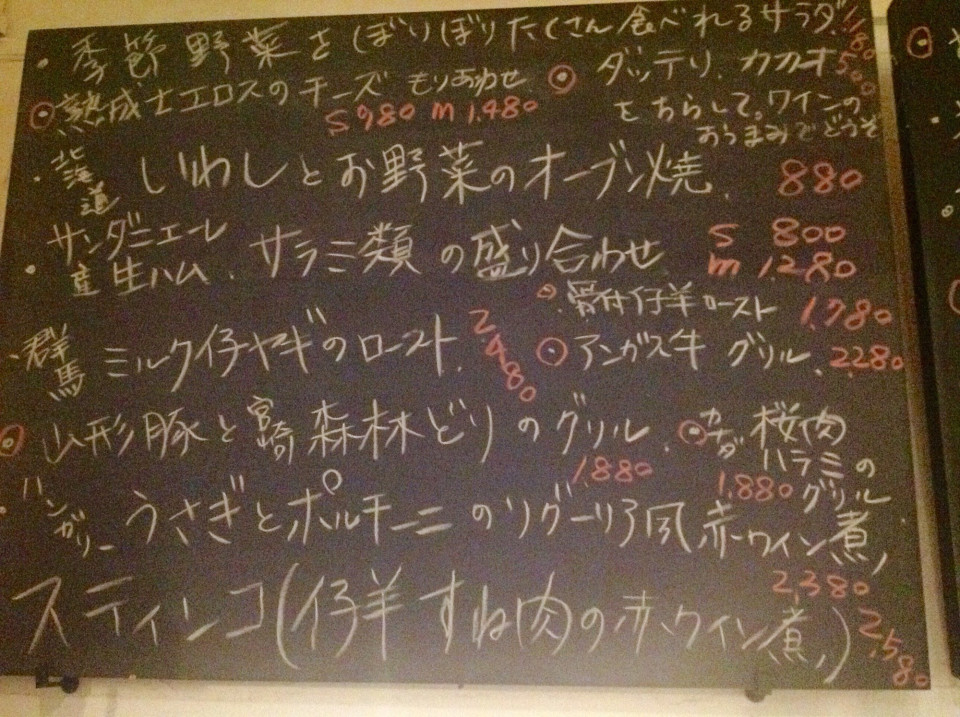 季節野菜をぼりぼりたくさん食べれるサラダ 1,180
熟成士エロスのチーズ もりあわせ
S 980 m 1,480
ダッテリ、カカオ 500
をちらして。ワインの
おつまみでどうぞ
北海道 いわしとお野菜のオーブン焼、 880
サンダニエーレ産生ハム、サラミ類の盛り合わせ
S 800
m 1,280
骨付仔羊ロースト 1,780
群馬 ミルク仔ヤギのロースト、 2,480
アンガス牛 グリル、 2,280
山形豚と宮崎森林どりのグリル、 1,880
カナダ 桜肉ハラミのグリル 1,880
ハンガリー うさぎとポルチーニのリグーリア風赤ワイン煮、 2,380
スティンコ(仔羊すね肉の赤ワイン煮、) 2,580